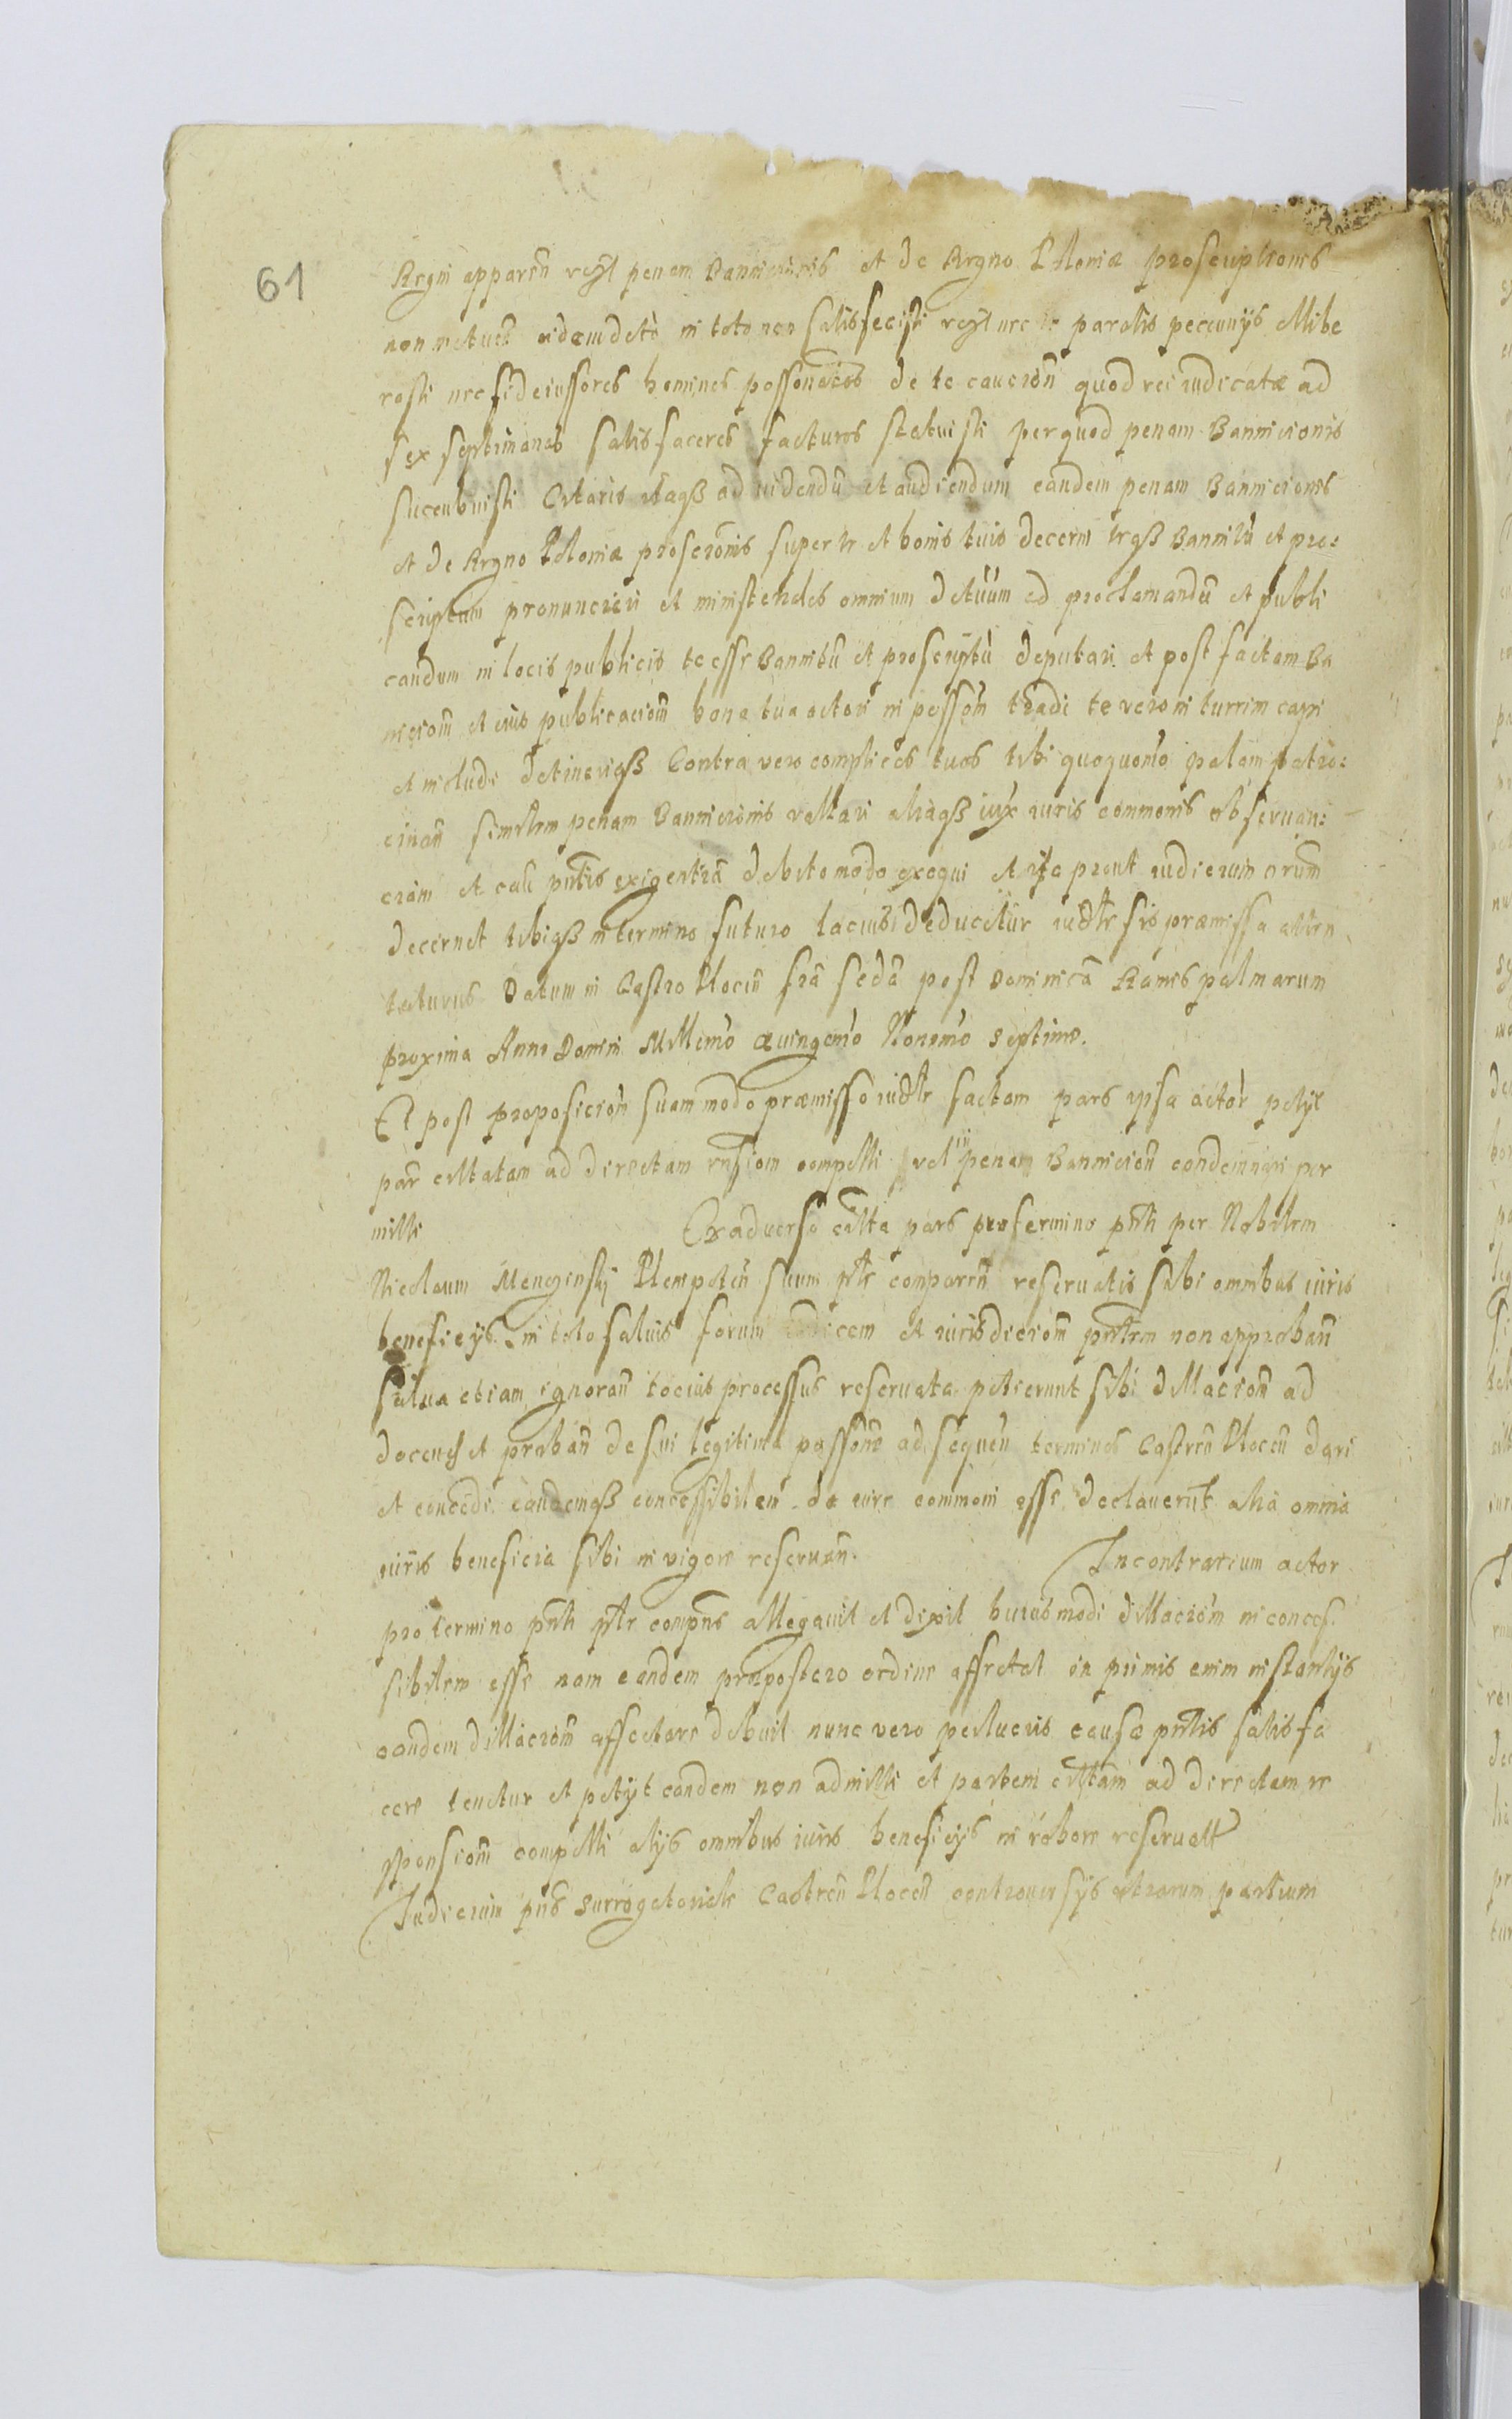 61
Regni apparen penam Bannicionis et de Regno Poloniæ proscriptionis
non metuens eidem decreto in toto non satisfecisti nec te paratis pecunijs elibe
rasti nec fideiussores homines possonatos de te caucion quod rei iudicatæ ad
sex septimanas satisfaceres facturos statuisti per quod penam Bannicionis
succubuisti Citaris itaqß ad videndū et audiendum eandem penam Bannicionis
et de Regno Poloniæ proscrionis super te et bonis tuis decerni teqß Bannitū et pro:
scriptum pronunciari et ministeriales omnium ad proclamandū et publi
candum in locis publicis te esse Bannitū et proscriptū deputari et post factam Ba
nicionē et eius publicacionē bona tua actori in possom tradi te vero in turrim capi
et includi detineriqß Contra vero complices tuos tibi quoquomo palam patro:
cinan similem penam Bannicionis vallari aliaqß iux iuris commonis obseruan:
ciam et cau pntis exigentiā debito modo exequi et ita prout iudicium
decernet tibiqß in termino futuro lacius deducetur sis præmissa atten
taturus Datum in Castro Plocen fria seda post dominicā Ramis palmarum
proxima Anno Domini Millmo Quingemo Nonamo septimo.
Et post proposicion suam modo præmisso factam pars ipsa actor petijt
par citatam ad directam rnsiom compelli vel in penam Bannicion condemnari per
mitti Ex aduerso citta pars pro termino pnti per Nobilem
Nicolaum Plenipoten suum ptr comparen reseruatis sibi omnibus iuris
beneficijs in toto saluis forum iudicem et iurisdiciom pntem non approban
salua etiam ignoran tocius processus reseruata petierunt sibi dillaciom ad
docend et proban de sui legitima possone ad sequen terminos Castren Plocen dari
et concedi eandemqß concessibilem de iure commoni esse declauerut alia omnia
iuris beneficia sibi in vigore reseruan. In contrarium actor
pro termino pnti ptr compns allegauit et dixit huiusmodi dillaciom inconces
sibilem esse nam eandem præpostero ordine affectat in primis enim instantijs
eandem dillaciom affectare debuit nunc vero causæ pntis satisfa
cere tenetur et petijt eandem non admitti et partem cittam ad directam re
sponsiom compelli alijs omnibus iuris beneficijs in robore reseruatt
Iudicium pns surrogatoriale Castren Plocen controuersijs utrarum partium